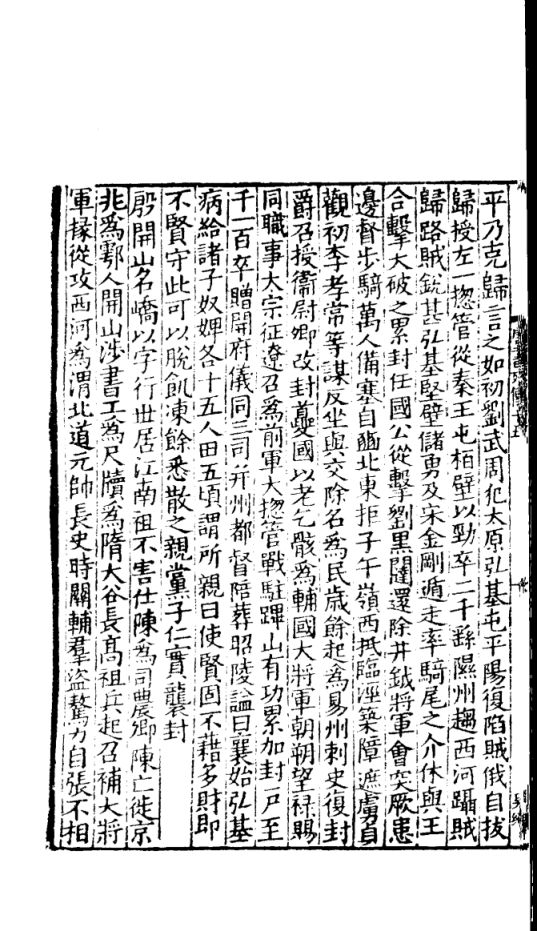 平乃克歸言之如初劉武周犯太原弘基屯平陽復陷賊俄自拔
歸授左一揔管從秦王屯栢壁以勁卒二千繇隰州趨西河躡賊
歸路賊銳甚弘基堅壁儲勇及宋金剛遁走率騎尾之介休與王
合擊大破之累封任國公從擊劉黑闥還除井鉞將軍會突厥患
邊督步騎萬人備塞自豳北東拒子午嶺西抵臨涇築障遮虜貞
觀初李孝常等謀反坐與交除名爲民歲餘起爲易州刺史復封
爵召授衞尉卿改封夔國以老乞骸爲輔國大將軍朝朔望祿賜
同職事太宗征遼召爲前軍大揔管戰駐蹕山有功累加封戶至
千一百卒贈開府儀同三司并州都督陪葬昭陵謚曰襄始弘基
病給諸子奴婢各十五人田五頃謂所親曰使賢固不藉多財即
不賢守此可以脫飢凍餘悉散之親黨子仁實襲封
殷開山名嶠以字行世居江南祖不害仕陳爲司農卿陳亡徙京
兆爲鄠人開山涉書工爲尺牘爲隋大谷長高祖兵起召補大將
軍掾從攻西河爲渭北道元帥長史時關輔羣盜鶩力自張不相